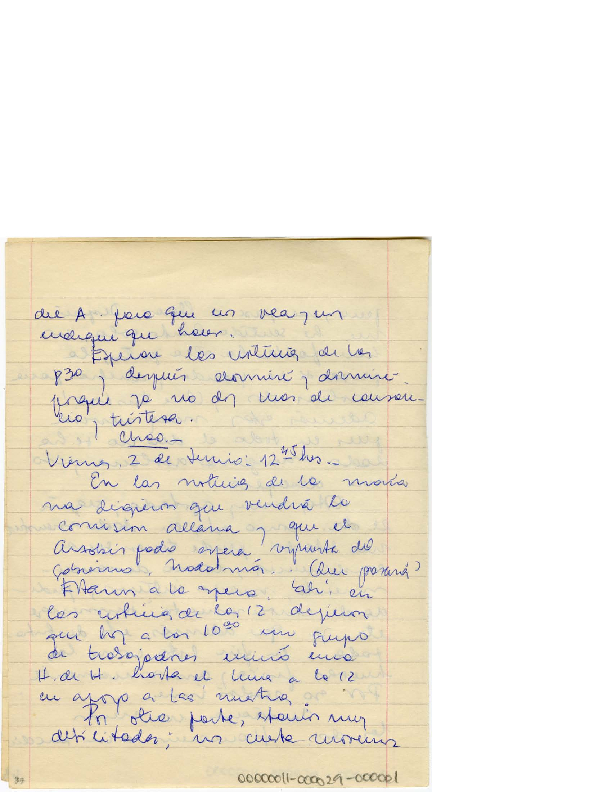 del A. para que nos vea y nos
indique que hacer.
Esperaré las noticias de las
930 y después dormiré y dormiré
porque ya no doy mas de cansan-
cio y tristeza.
Chao.-
Viernes, 2 de Junio: 12 45 hrs.-
En las noticias de la maña
na dijeron que vendrá la
comisión allana y que el
Arzobispado espera respuesta del
Gobierno. Nada más. (Que pasará?
Estamos a la espera. en
las noticias de las 12 dijeron
que hoy a las 10 30 un grupo
de trabajadores inició una
H. de H. hasta el lunes a las 12
en apoyo a las nuestras.
Por otra parte, estamos muy
debilitadas; nos cuesta movernos
37
00000011-000029-000001